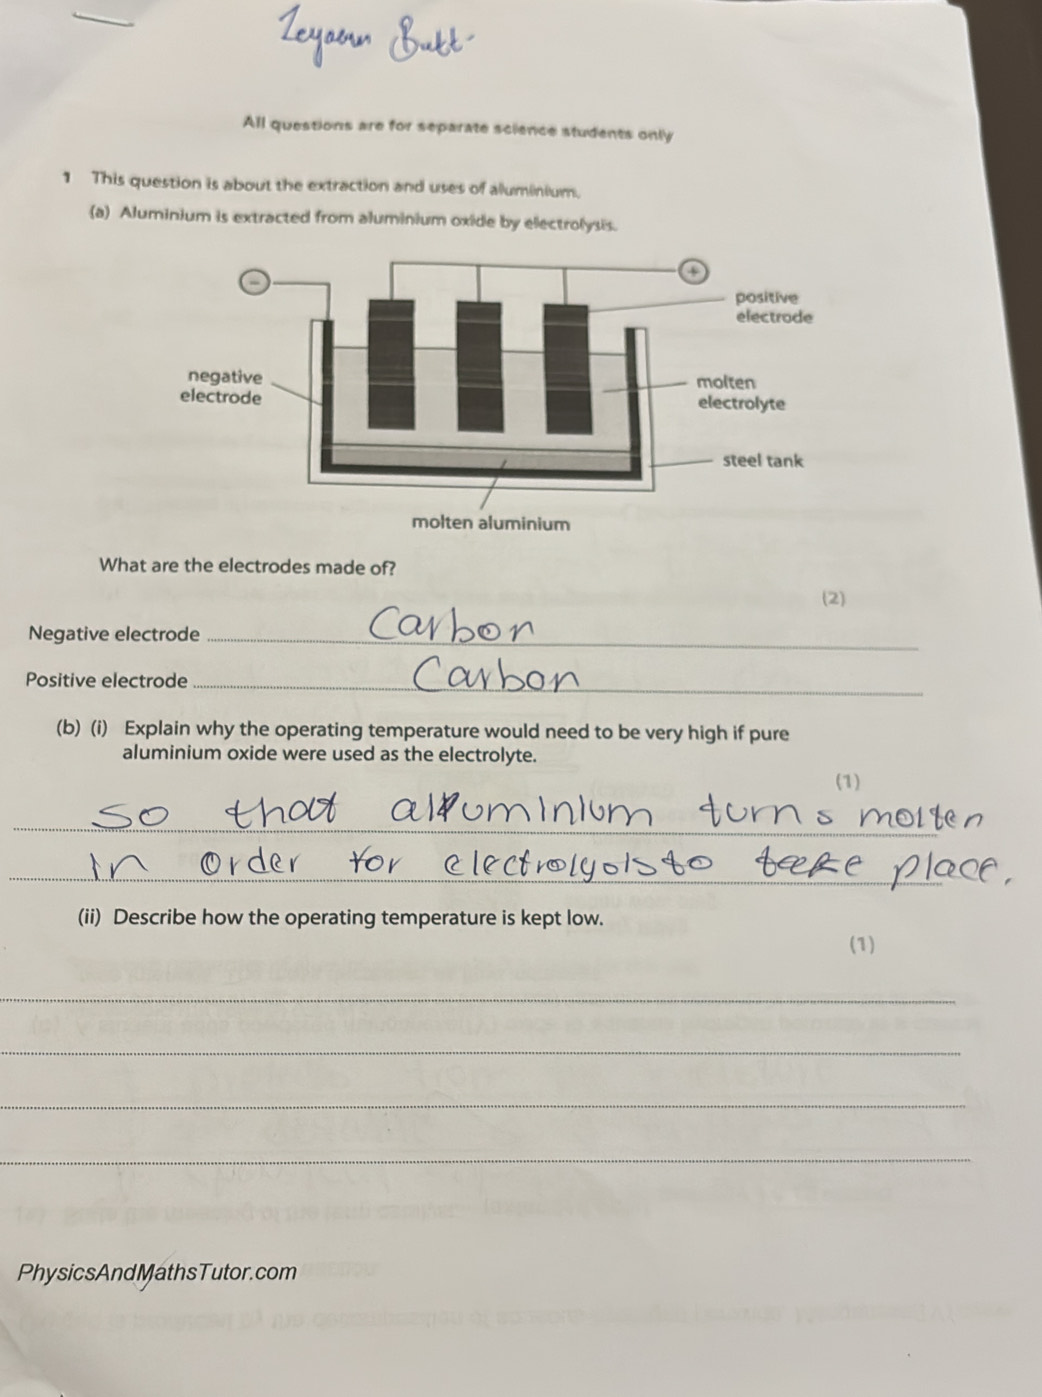 Butt.
All questions are for separate science students only
1 This question is about the extraction and uses of aluminium.
(a) Aluminium is extracted from aluminium oxide by electrolysis.
−
+
positive
electrode
negative
electrode
molten
electrolyte
steel tank
molten aluminium
What are the electrodes made of?
(2)
Negative electrode Carbon
Positive electrode Carbon
(b) (i) Explain why the operating temperature would need to be very high if pure
aluminium oxide were used as the electrolyte.
(1)
so that aluminium turns molten
in order for electrolysis to take place.
(ii) Describe how the operating temperature is kept low.
(1)
PhysicsAndMathsTutor.com